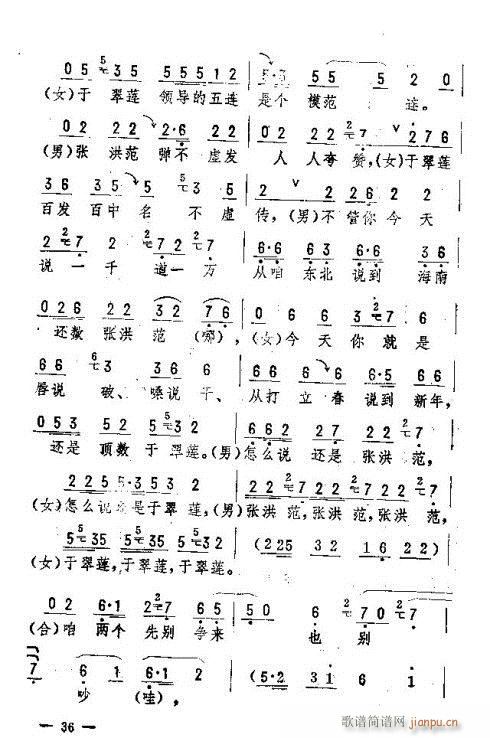 0 5 5 3 5 5 5 5 1 2 5·3 5 5 5 2 0
(女)于 翠莲 领导的五连 是个 模范 连。
0 2 2 2 2·6 2 2 0 2 2 2 7 2 7 6
(男)张 洪范 弹不 虚发 人 人夸 赞,(女)于翠莲
3 6 3 5 5 3 2 2 2 2 6 2 2
百发 百中 名 不 虚 传,(男)不 管你 今天
2 7 2 7 2 2 7 6·6 6 3 6·6 3 6
说一 千 道一 万 从咱 东北 说到 海南
0 2 6 2 2 3 2 7 6 0 6 6 3 2 7 6
还数 张洪 范 (哪), (女)今天 你 就 是
6 6 6 3 3 6 6 6 6 6 6 6·5 6 6
唇说 破、嗓说 干、 从打 立春 说到 新年,
0 5 3 5 2 5 3 2 6 6 2 6 2 2 2 7
还是 顶数 于翠莲。(男)怎么说 还是 张洪 范,
2 2 5 2 5·3 5 3 2 2 2 2 7 2 2 2 7 2 2 2 7
(女)怎么说 于翠莲,(男)张洪 范,张洪 范,张洪 范,
5 3 5 5 3 5 5 3 2 (2 2 5 3 2 1 6 2 2)
(女)于翠莲,于翠莲,于翠莲。
0 2 6·1 2 7 6 5 5 0 6 7 0 7
(合)咱 两个 先别 争来 也 别
7 6 1 6·1 2 (5·2 3 2 1 6 1 2)
吵 (哇),
— 36 —
歌谱简谱网
jianpu.cn